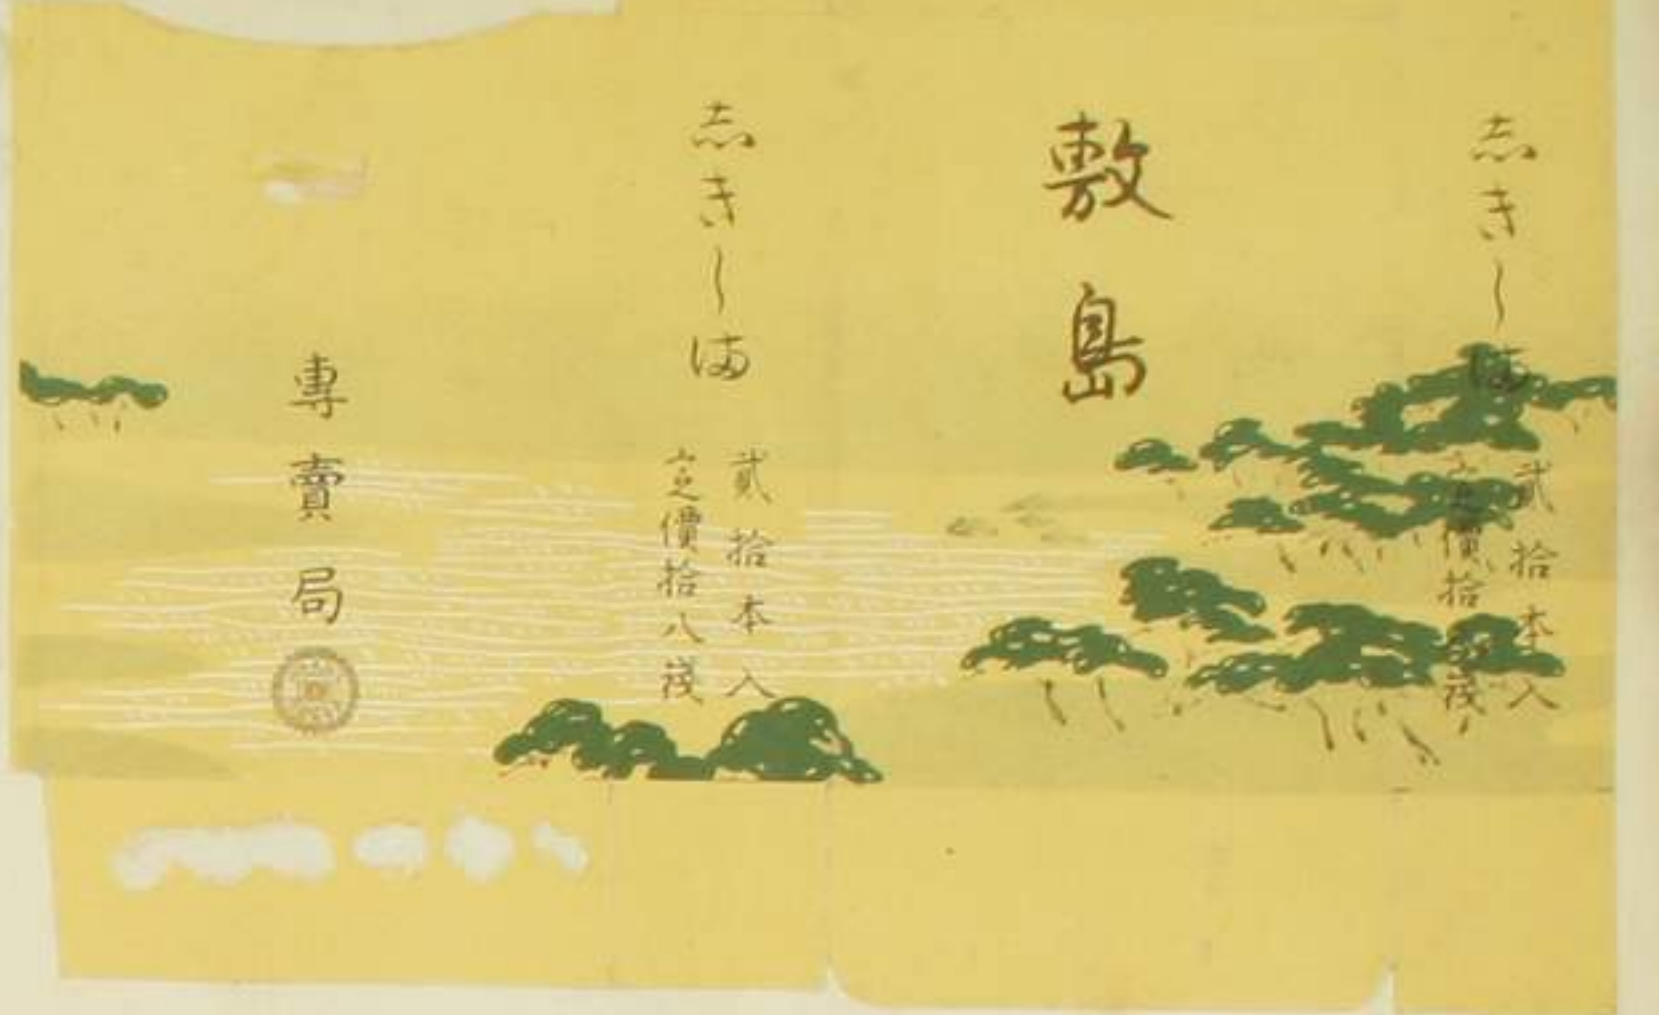 志きしま
貳拾本入
定價拾八錢
敷島
志きしま
貳拾本入
定價拾八錢
專賣局